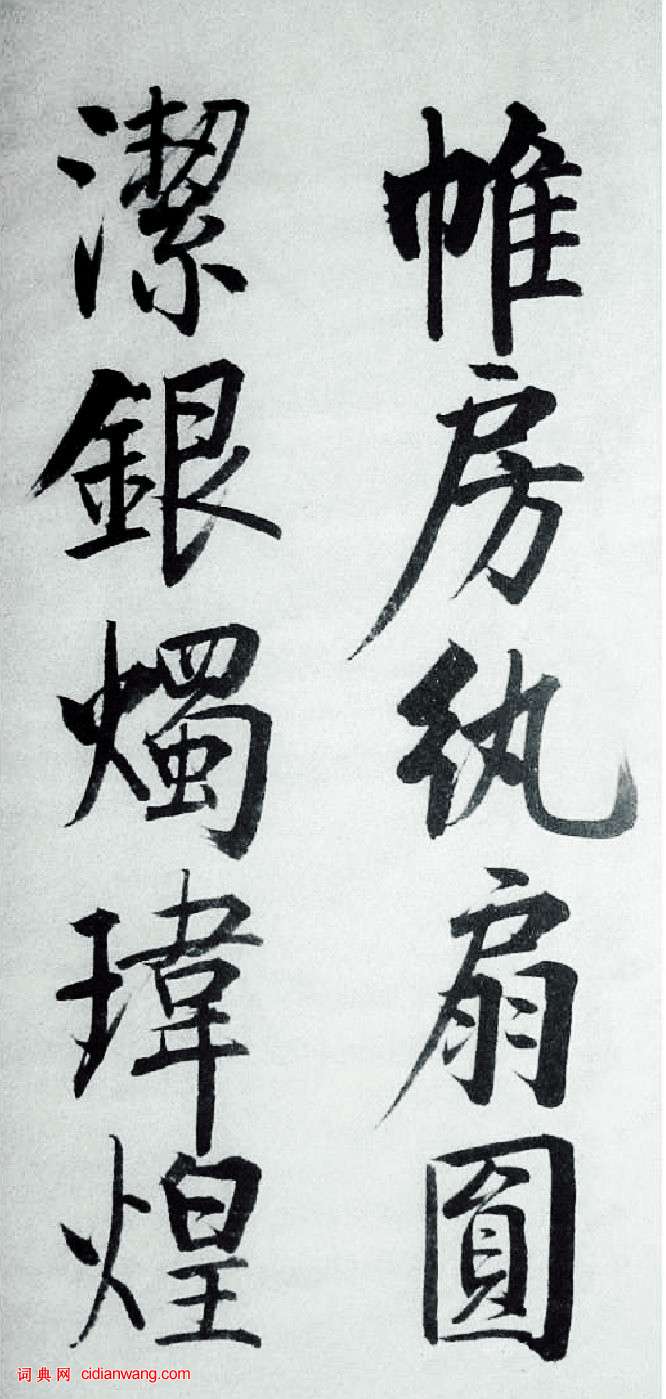 帷房紈扇圓
潔銀燭瑋煌
词典网 cidianwang.com